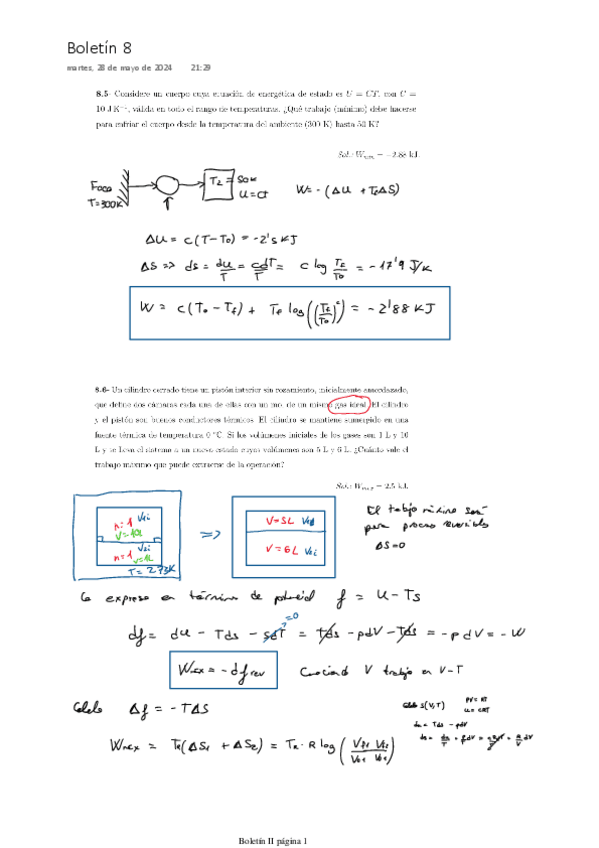 Boletín 8
martes, 28 de mayo de 2024 21:29
8.5- Considere un cuerpo cuya ecuación de energética de estado es U = CT, con C =
10 J K⁻¹, válida en todo el rango de temperaturas. ¿Qué trabajo (mínimo) debe hacerse
para enfriar el cuerpo desde la temperatura del ambiente (300 K) hasta 50 K?
Sol.: Wmin = −2.88 kJ.
Foco
T=300K
T2 = 50K
U=CT
W= -(ΔU + T0ΔS)
ΔU = C(T-T0) = -2'5 KJ
ΔS => ds = du/T = cdT/T = c log Tf/T0 = -17'9 J/K
W = C(T0 - Tf) + Tf log((Tf/T0)^c) = -2'88 KJ
8.6- Un cilindro cerrado tiene un pistón interior sin rozamiento, inicialmente
que define dos cámaras cada una de ellas con un mol de un mismo gas ideal. El cilindro
y el pistón son buenos conductores térmicos. El cilindro se mantiene sumergido en una
fuente térmica de temperatura 0 °C. Si los volúmenes iniciales de los gases son 1 L y 10
L y se lleva el sistema a un nuevo estado cuyos volúmenes son 5 L y 6 L. ¿Cuánto vale el
trabajo máximo que puede extraerse de la operación?
Sol.: Wmax = 2.5 kJ.
n=1 V1i
V=10L
n=1 V2i
V=1L
T=273K
=>
V=5L
V=6L
El trabajo máximo será
para proceso reversible
ΔS=0
expreso en término de potencial f = U - TS
df = du - Tds - sdT = Tds - pdV - Tds = -pdV = -W
=0
Wmax = -dfrev
V trabajo en V-T
Calculo Δf = -TΔS
S(V,T)
PV=RT
U=CRT
du = Tds - pdV
Wmax = TR(ΔS1 + ΔS2) = TR·R log
Boletín II página 1